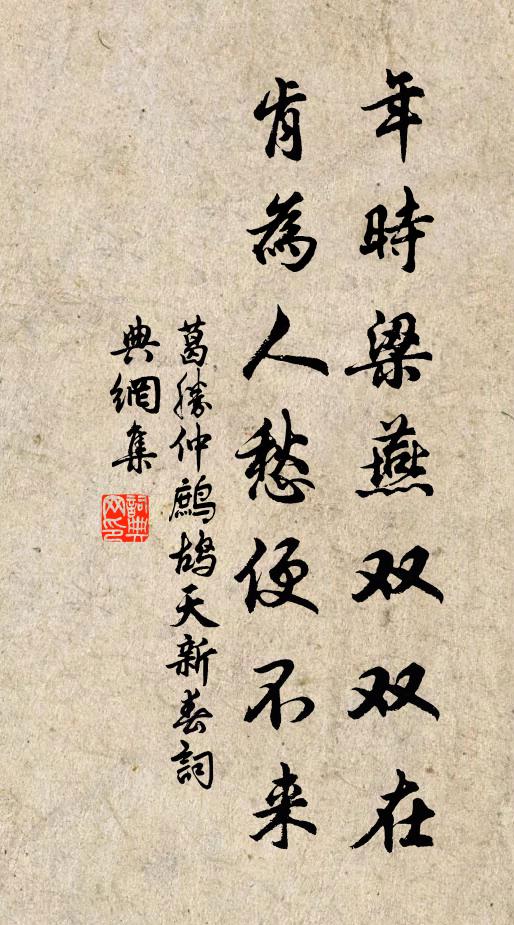 年時梁燕双双在
肯為人愁便不来
葛勝仲鷓鴣天新春詞
典網集
詞典網印